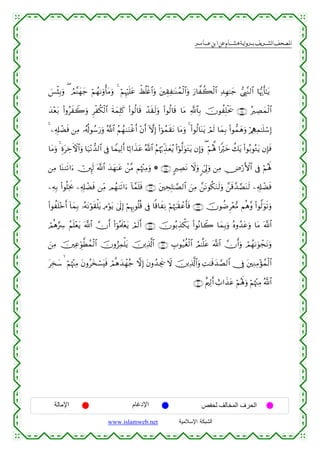 المصحف الشريف برواية هشام عن ابن عامر
يَٰٓأَيُّهَا ٱلنَّبِيُّ جَٰهِدِ ٱلۡكُفَّارَ وَٱلۡمُنَٰفِقِينَ وَٱغۡلُظۡ عَلَيۡهِمۡۚ وَمَأۡوَىٰهُمۡ جَهَنَّمُۖ وَبِئۡسَ
ٱلۡمَصِيرُ يَحۡلِفُونَ بِٱللَّهِ مَا قَالُواْ وَلَقَدۡ قَالُواْ كَلِمَةَ ٱلۡكُفۡرِ وَكَفَرُواْ بَعۡدَ
إِسۡلَٰمِهِمۡ وَهَمُّواْ بِمَا لَمۡ يَنَالُواْۚ وَمَا نَقَمُوٓاْ إِلَّآ أَنۡ أَغۡنَىٰهُمُ ٱللَّهُ وَرَسُولُهُۥ مِن فَضۡلِهِۦۚ
فَإِن يَتُوبُواْ يَكُ خَيۡرٗا لَّهُمۡۖ وَإِن يَتَوَلَّوۡاْ يُعَذِّبۡهُمُ ٱللَّهُ عَذَابًا أَلِيمٗا فِي ٱلدُّنۡيَا وَٱلۡأٓخِرَةِۚ وَمَا
لَهُمۡ فِي ٱلۡأَرۡضِ مِن وَلِيّٖ وَلَا نَصِيرٖ ۞ وَمِنۡهُم مَّنۡ عَٰهَدَ ٱللَّهَ لَئِنۡ ءَاتَىٰنَا مِن
فَضۡلِهِۦ لَنَصَّدَّقَنَّ وَلَنَكُونَنَّ مِنَ ٱلصَّٰلِحِينَ فَلَمَّآ ءَاتَىٰهُم مِّن فَضۡلِهِۦ بَخِلُواْ بِهِۦ
وَتَوَلَّواْ وَّهُم مُّعۡرِضُونَ فَأَعۡقَبَهُمۡ نِفَاقٗا فِي قُلُوبِهِمۡ إِلَىٰ يَوۡمِ يَلۡقَوۡنَهُۥ بِمَآ أَخۡلَفُواْ
ٱللَّهَ مَا وَعَدُوهُ وَبِمَا كَانُواْ يَكۡذِبُونَ أَلَمۡ يَعۡلَمُوٓاْ أَنَّ ٱللَّهَ يَعۡلَمُ سِرَّهُمۡ
وَنَجۡوَىٰهُمۡ وَأَنَّ ٱللَّهَ عَلَّٰمُ ٱلۡغُيُوبِ ٱلَّذِينَ يَلۡمِزُونَ ٱلۡمُطَّوِّعِينَ مِنَ
ٱلۡمُؤۡمِنِينَ فِي ٱلصَّدَقَٰتِ وَٱلَّذِينَ لَا يَجِدُونَ إِلَّا جُهۡدَهُمۡ فَيَسۡخَرُونَ مِنۡهُمۡ سَخِرَ
ٱللَّهُ مِنۡهُمۡ وَلَهُمۡ عَذَابٌ أَلِيمٌ
الحرف المخالف لحفص الإدغام الإمالة
الشبكة الإسلامية www.islamweb.net